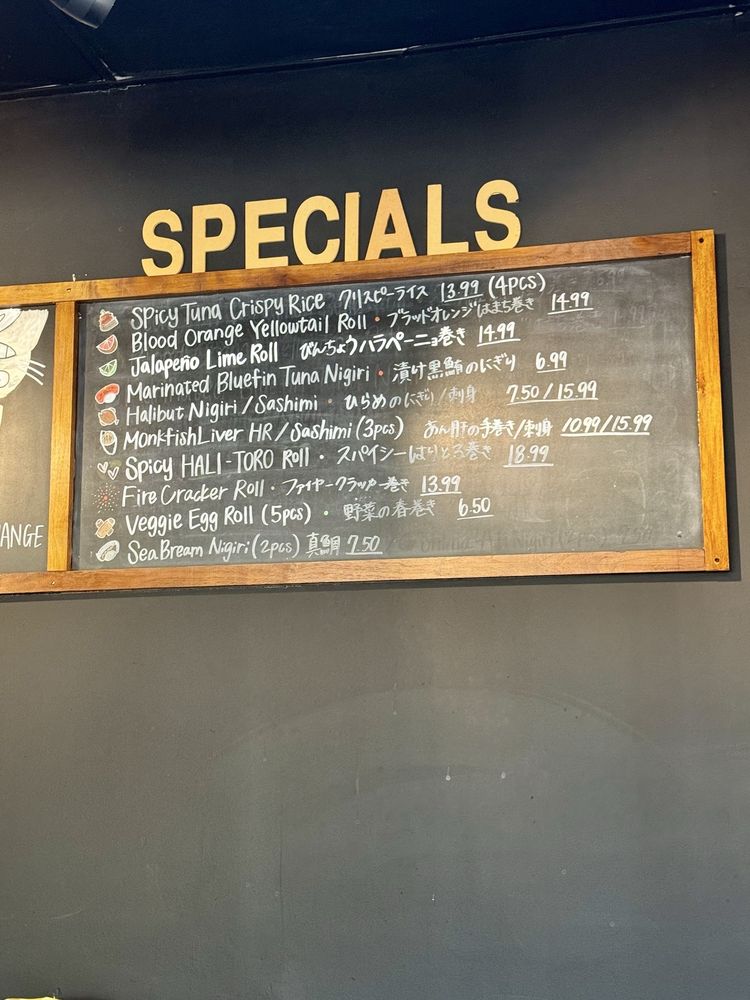 SPECIALS
Spicy Tuna Crispy Rice クリスピーライス 13.99 (4pcs)
Blood Orange Yellowtail Roll • ブラッドオレンジはまち巻き 14.99
Jalapeño Lime Roll びんちょうハラペーニョ巻き 14.99
Marinated Bluefin Tuna Nigiri • 漬け黒鮪のにぎり 6.99
Halibut Nigiri / Sashimi • ひらめのにぎり/刺身 7.50 / 15.99
Monkfish Liver HR / Sashimi (3pcs) あん肝の手巻き/刺身 10.99/15.99
Spicy HALI-TORO Roll • スパイシーはりとろ巻き 18.99
Fire Cracker Roll • ファイヤークラッカー巻き 13.99
Veggie Egg Roll (5pcs) • 野菜の春巻き 6.50
Sea Bream Nigiri (2pcs) 真鯛 7.50
ANGE